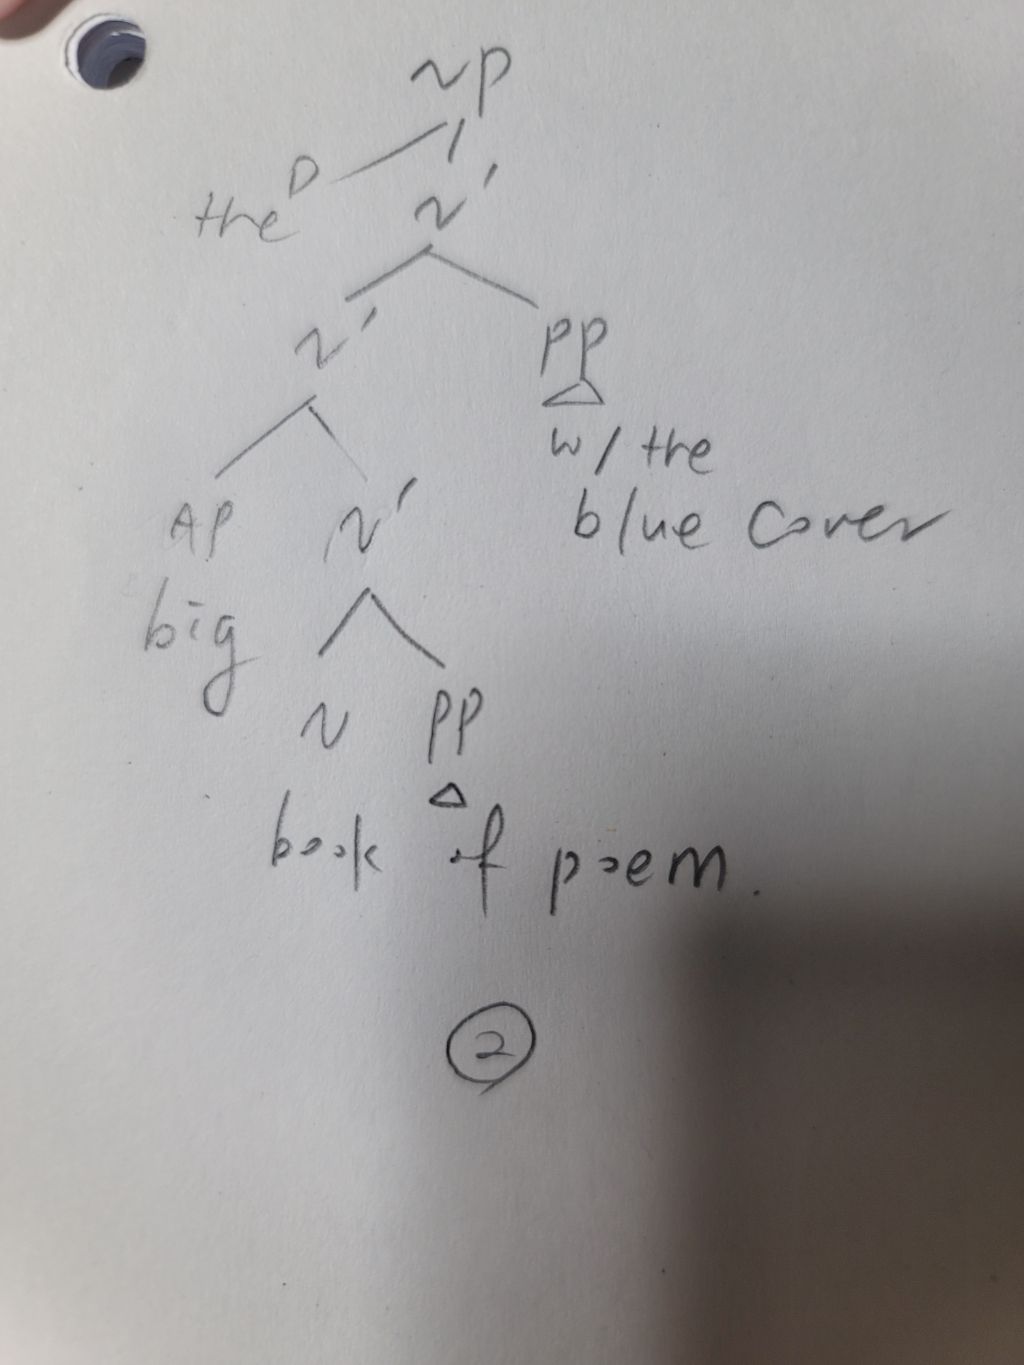 NP
D
the
N'
N'
PP
w/ the
blue cover
AP
N'
big
N
PP
book of poem.
2